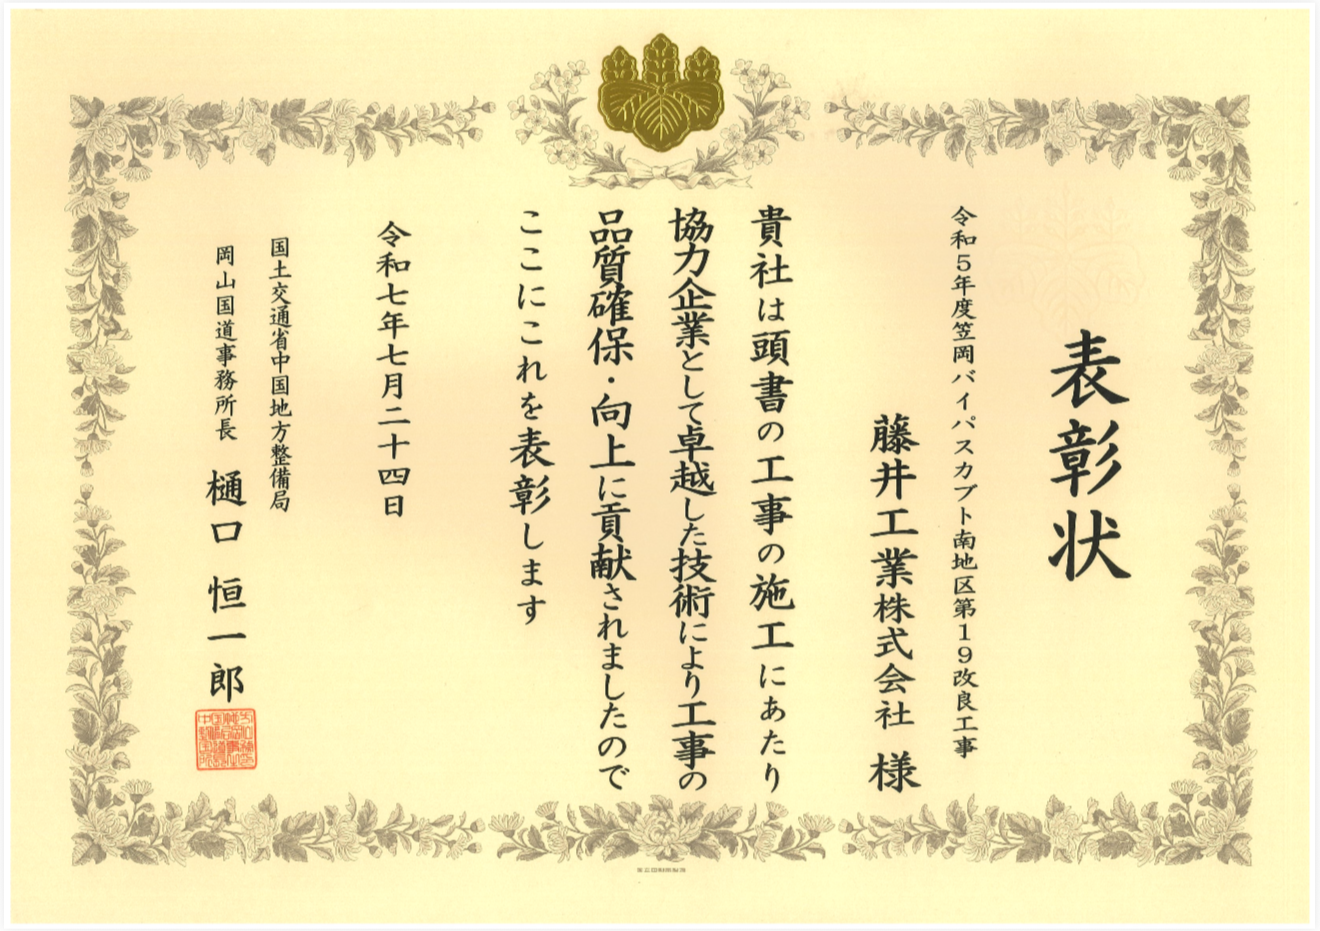 表彰状
令和5年度笠岡バイパスカブト南地区第19改良工事
藤井工業株式会社 様
貴社は頭書の工事の施工にあたり
協力企業として卓越した技術により工事の
品質確保・向上に貢献されましたので
ここにこれを表彰します
令和七年七月二十四日
国土交通省中国地方整備局
岡山国道事務所長 樋口 恒一郎